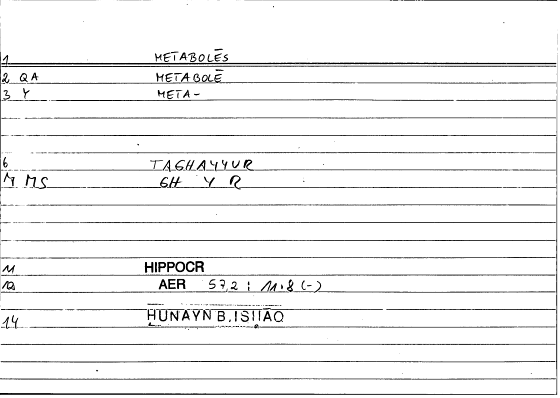 1 METABOLĒS
2 QA METABOLĒ
3 Y META-
6 TAGHAYYUR
M MS GH Y R
11 HIPPOCR
12 AER 57,2 : 11.8 (-)
14 HUNAYN B. ISḤĀQ